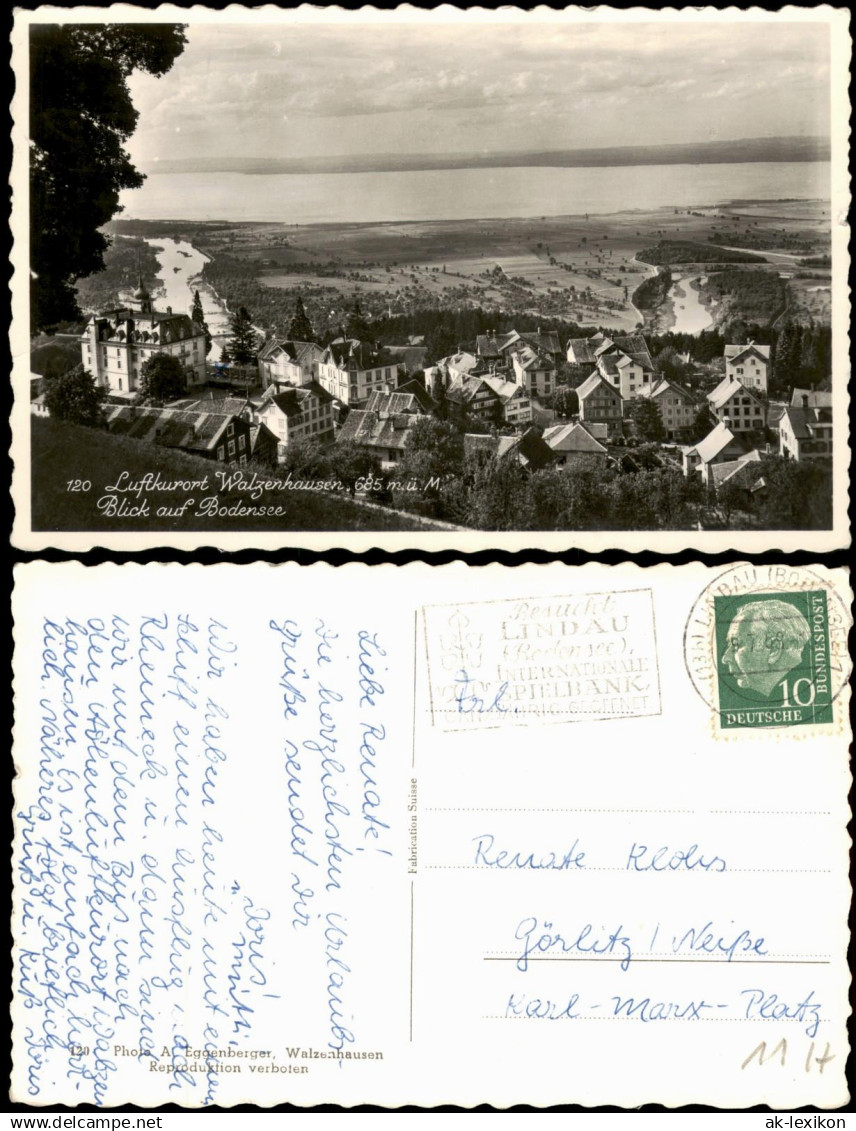 120 Luftkurort Walzenhausen, 685 m.ü.M.
Blick auf Bodensee
Liebe Renate!
Die herzlichsten Urlaubs-
grüße sendet Dir
Doris!
u. Mutti.
Wir haben heute mit einem
Schiff einen Ausflug nach
Rheineck u. dann sind
wir mit dem Bus nach
den Höhenluftkurort Walzen
hausen. Es ist einfach herr-
lich. Näheres folgt brieflich
Gruß u. Kuß Doris
120 Photo A. Eggenberger, Walzenhausen
Reproduktion verboten
Fabrication Suisse
Besucht
LINDAU
(Bodensee),
INTERNATIONALE
SPIELBANK,
GANZJÄHRIG GEÖFFNET
LINDAU (BODENSEE)
DEUTSCHE
BUNDESPOST
10
Frl.
Renate Klohs
Görlitz / Neiße
Karl-Marx-Platz
11 H
ak-lexikon
Delcampe.net
ak-lexikon.com